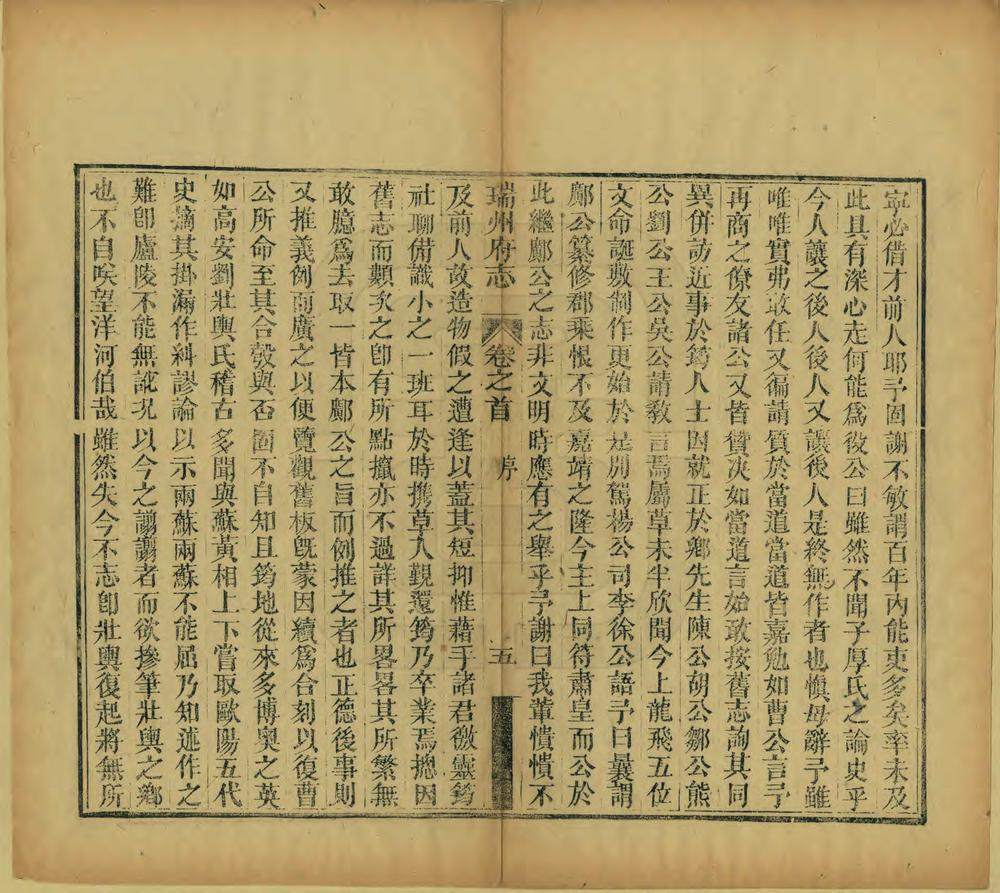 寧必借才前人耶予固謝不敏謂百年內能吏多矣率未及
此具有深心走何能為役公曰雖然不聞子厚氏之論史乎
今人讓之後人後人又讓後人是終無作者也慎毋辭予雖
唯唯實弗敢任又徧請質於當道當道皆嘉勉如曹公言予
再商之僚友諸公又皆贊決如當道言始敢按舊志詢其同
異併訪近事於筠人士因就正於鄉先生陳公胡公鄒公熊
公劉公王公吳公請教言焉屬草未半欣聞今上龍飛五位
文命誕敷制作更始於是開駕楊公司李徐公語予曰曩謂
鄺公纂修郡乘恨不及嘉靖之隆今主上同符肅皇而公於
此繼鄺公之志非文明時應有之舉乎予謝曰我輩憒憒不
瑞州府志 卷之首 序 五
及前人故造物假之遭逢以蓋其短抑惟藉手諸君徼靈筠
社聊備識小之一班耳於時攜草入覲還筠乃卒業焉摠因
舊志而類次之卽有所點攛亦不過詳其所畧畧其所繁無
敢臆為去取一皆本鄺公之旨而例推之者也正德後事則
又推義例而廣之以便覽觀舊板旣蒙因續為合刻以復曹
公所命至其合彀與否固不自知且筠地從來多博奧之英
如高安劉壯輿氏稽古多聞與蘇黃相上下嘗取歐陽五代
史摘其掛漏作糾謬論以示兩蘇兩蘇不能屈乃知述作之
難卽廬陵不能無訛況以今之謭謭者而欲摻筆壯輿之鄉
也不自唉望洋河伯哉雖然失今不志卽壯輿復起將無所